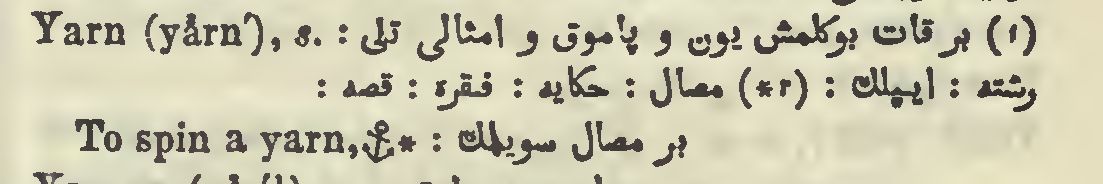 Yarn (yårn′), s. : (١) بر قات بوكلمش يون و پاموق و امثالى تلى
رشته : ايپلك : (٢*) مصال : حكايه : فقره : قصه :
To spin a yarn,⚓* : بر مصال سويلمك